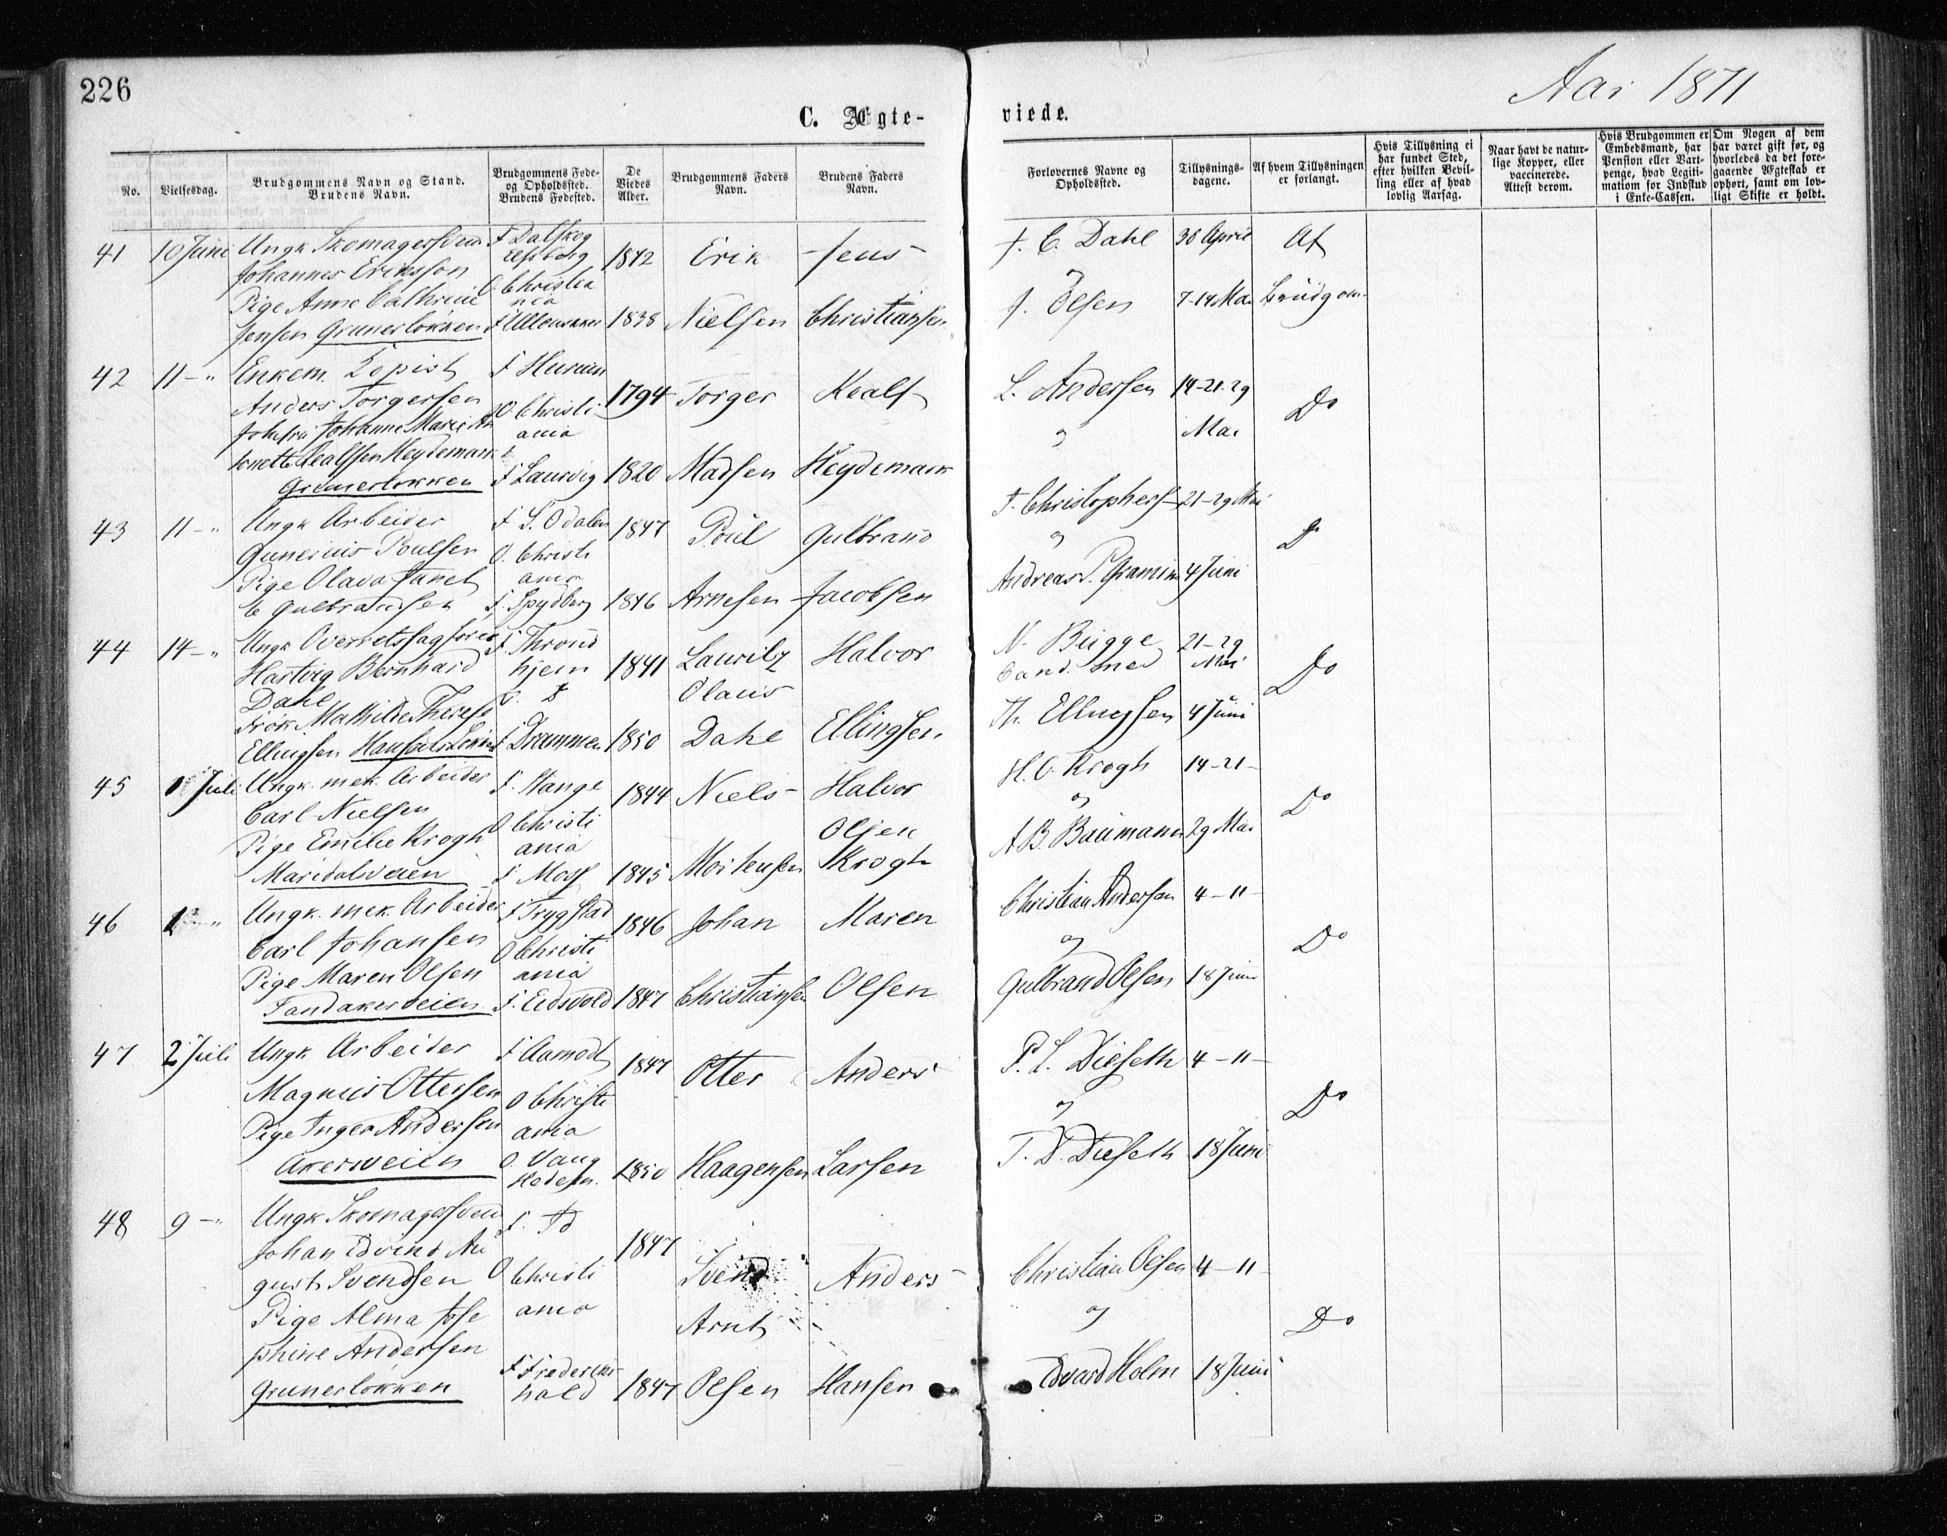 226
Aar 1871
C. Ægte-
viede.
No.
Vielsesdag.
Brudgommens Navn og Stand.
Brudens Navn.
Brudgommens Føde-
og Opholdssted.
Brudens Fødested.
De
Viedes
Alder.
Brudgommens Faders
Navn.
Brudens Faders
Navn.
Forlovernes Navne og
Opholdssted.
Tillysnings-
dagene.
Af hvem Tillysningen
er forlangt.
Hvis Tillysning ei
har fundet Sted,
efter hvilken Bevil-
ling eller af hvad
lovlig Aarsag.
Naar havt de natur-
lige Kopper, eller
vaccinerede.
Attest derom.
Hvis Brudgommen er
Embedsmand, har
Pension eller Vart-
penge, hvad Legiti-
mation for Indskud
i Enke-Cassen.
Om Nogen af dem
har været gift før, og
hvorledes da det fore-
gaaende Ægteskab er
ophørt, samt om lov-
ligt Skifte er holdt.
41
10 Juni
Ungk Skomagersvend
Johannes Eriksson
Pige Anne Cathrine
Jensen Grunerløkken
F Dalskog
Elfsborg
O. Christia
nia
F Ullensaker
1842
1838
Erik
Nielsen
Jens
Christiansen
J. C. Dahl
J. Olsen
30 April
7-14 Mai
Af
Brudgom.
42
11 - "
Enkem. Kopist
Anders Torgersen
Jomfru Johanne Marie An
tonette Kealfsen Heydemark
Grunerløkken
F Hurum
O Christi
ania
F Laurvig
1794
1820
Torger
Madsen
Kealf
Heydemark
L. Andersen
og
14-21-29
Mai
Do
43
11 - "
Ungk Arbeider
Gunerius Poulsen
Pige Olava Janet
te Gulbrandsen
F S. Odalen
O. Christi
ania
F. Spydberg
1847
1846
Poul
Arnesen
Gulbrand
Jacobsen
F. Christophersen
og
Andreas P.
21-29 Mai
4 Juni
Do
44
14 - "
Ungk Overretssagfører
Hartvig Bernhard
Dahl
Frøk. Mathilde Therese
Ellingsen
F. Thrond
hjem
O. D
F Drammen
1841
1850
Lauritz
Olaus
Dahl
Halvor
Ellingsen
N. Bugge
Cand. med
Th. Ellingsen
21-29
Mai
4 Juni
Do
45
1 Juli
Ungk. mek. Arbeider
Carl Nielsen
Pige Emilie Krogh
Maridalsveien
F. Stange
O Christi
ania
F Moss
1844
1845
Niels
Mortensen
Halvor
Olsen
Krogh
H. O. Krogh
og
A B. Baumann
14-21-
29 Mai
Do
46
1 "
Ungk. mek. Arbeider
Carl Johansen
Pige Maren Olsen
Sandakerveien
F Trygstad
O Christi
ania
F. Eidsvold
1846
1847
Johan
Christiansen
Maren
Olsen
Christian Andersen
og
Gulbrand Olsen
4-11-
18 Juni
Do
47
2 Juli
Ungk Arbeider
Magnus Ottersen
Pige Inger Andersen
Akersveien
F Aamodt
O Christi
ania
O. Vang
Hedem.
1847
1850
Otter
Haagensen
Anders
Larsen
P. L. Diseth
og
T. D. Diseth
4-11-
18 Juni
Do
48
9 - "
Ungk Skomagersvend
Johan Edvind Au
gust Svendsen
Pige Alma Jose
phine Andersen
Grunerløkken
F.
O Christi
ania
F Frederiks
hald
1847
1847
Svend
Arnt
Olsen
Anders
Hansen
Christian Olsen
og
Edvard Holm
4-11-
18 Juni
Do